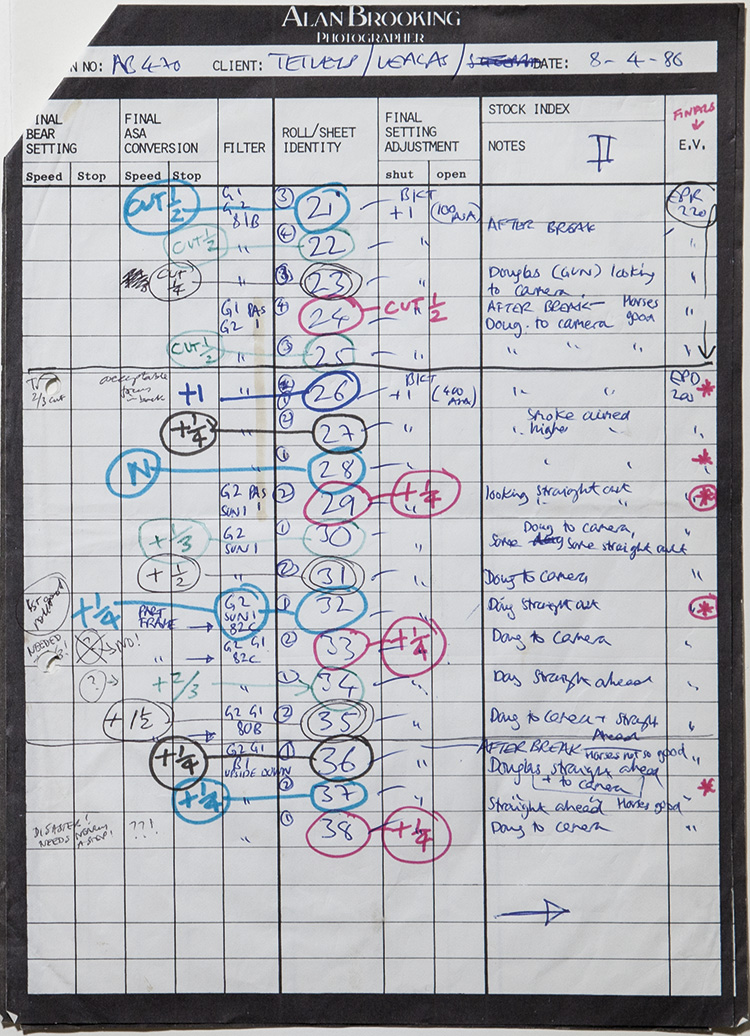 ALAN BROOKING
PHOTOGRAPHER
N NO: AB 470 CLIENT: TETLEYS / LEAGAS / DATE: 8-4-86
INAL BEAR SETTING
FINAL ASA CONVERSION
FILTER
ROLL/SHEET IDENTITY
FINAL SETTING ADJUSTMENT
STOCK INDEX
NOTES II
FINALS
E.V.
Speed Stop Speed Stop shut open
CUT 1/2 G1 G2 81B ③ 21 BKT +1 (100 ASA) EPR 220
AFTER BREAK
CUT 1/2 " ④ 22 " "
CUT 1/4 " 23 " Douglas (GUN) looking to camera. "
G1 PAS G2 1 ④ 24 CUT 1/2 " AFTER BREAK - Horses good
Doug. to camera "
CUT 1/2 " ③ 25 " " " " "
2/3 cut acceptable +1 " 26 BKT +1 (400 ASA) " " EPD 200 *
+1/4 " ② 27 " " Stroke aimed higher "
N " ① 28 " " " *
G2 PAS SUN 1 ② 29 +1/4 " looking straight out " " *
+1/3 G2 SUN 1 ① 30 " Doug to camera,
Some some straight out "
+1/2 " ② 31 " Doug to camera "
+1/4 PART FRAME G2 SUN 1 82C ① 32 " Doug straight out " *
NEEDED ? NO! " G2 G1 82C ② 33 +1/4 " Doug to camera "
? +2/3 " ① 34 " Doug straight ahead "
+1 1/2 " G2 G1 80B ② 35 " Doug to camera + straight Ahead "
+1/4 G2 G1 B1 UPSIDE DOWN ① 36 " AFTER BREAK - Horses not so good "
Douglas straight ahead
+ to camera
+1/4 " ② 37 " " " *
Straight ahead Horses good
DISASTER! NEEDS NEARLY A STOP! ??! " ① 38 +1/4 " Doug to camera "